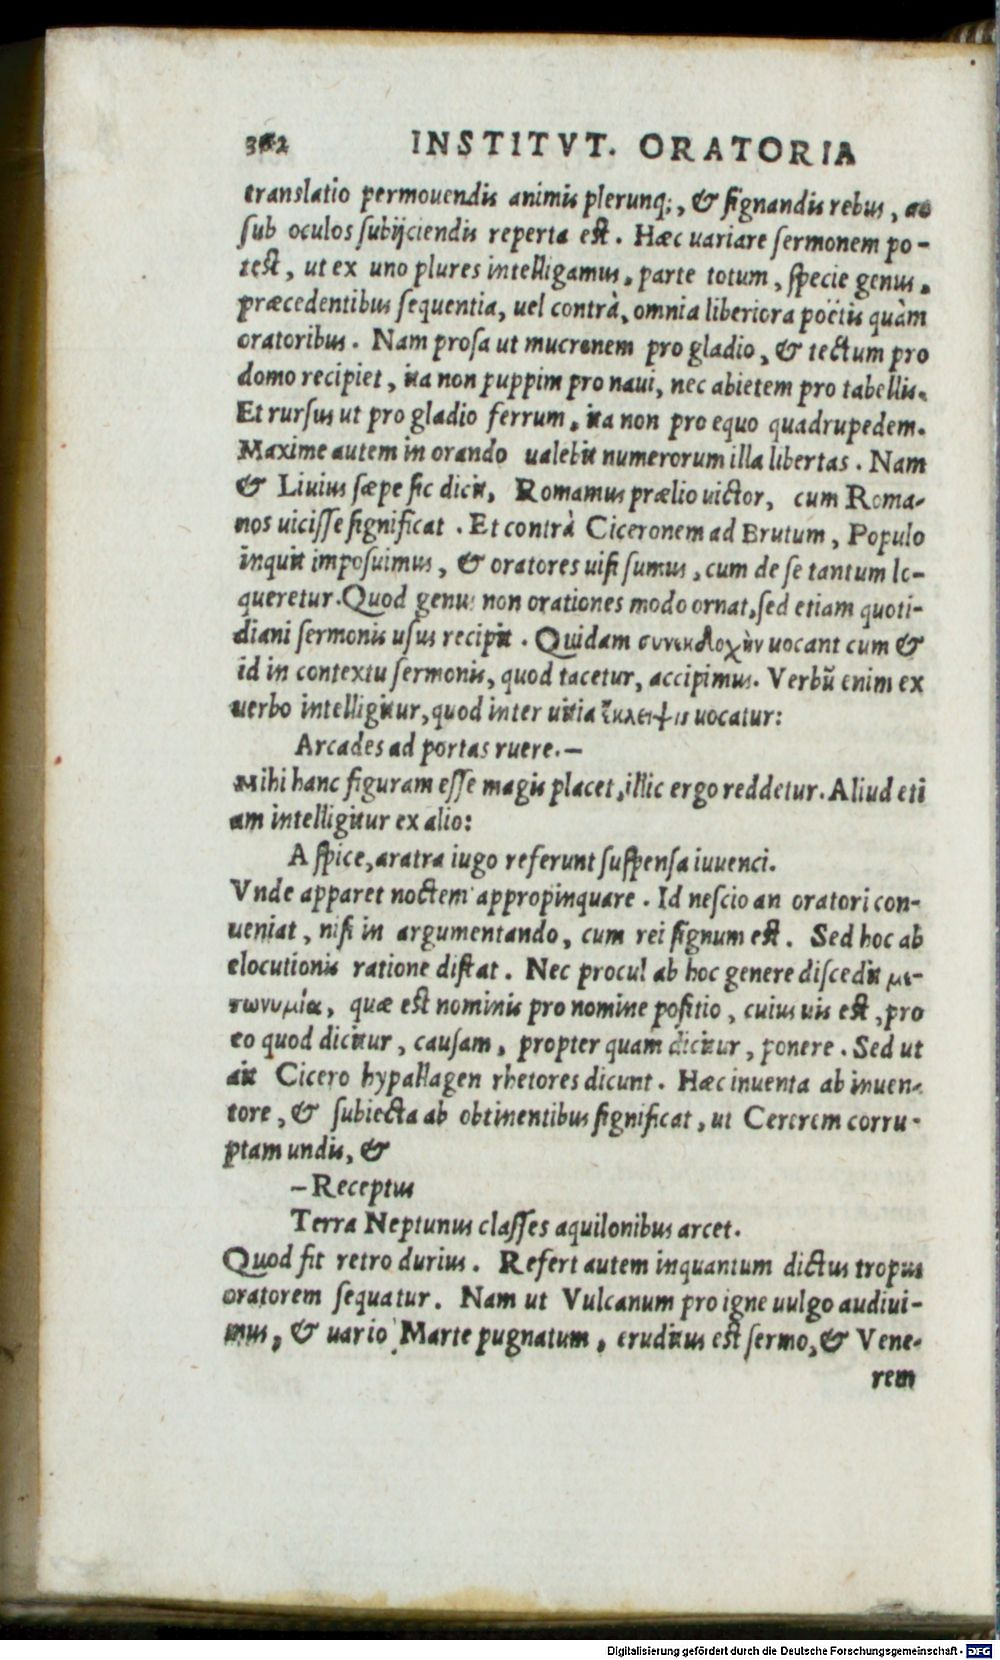 302 INSTITVT. ORATORIA
translatio permouendis animis plerunq;, & signandis rebus, ac
sub oculos subijciendis reperta est. Hæc uariare sermonem po-
test, ut ex uno plures intelligamus, parte totum, specie genus,
præcedentibus sequentia, uel contrà, omnia liberiora poëtis quàm
oratoribus. Nam prosa ut mucronem pro gladio, & tectum pro
domo recipiet, ita non puppim pro naui, nec abietem pro tabellis.
Et rursus ut pro gladio ferrum, ita non pro equo quadrupedem.
Maxime autem in orando ualebit numerorum illa libertas. Nam
& Liuius sæpe sic dicit, Romanus prælio uictor, cum Roma-
nos uicisse significat. Et contrà Ciceronem ad Brutum, Populo
inquit imposuimus, & oratores uisi sumus, cum de se tantum lo-
queretur. Quod genus non orationes modo ornat, sed etiam quoti-
diani sermonis usus recipit. Quidam συνεκδοχὴν uocant cum &
id in contextu sermonis, quod tacetur, accipimus. Verbū enim ex
uerbo intelligitur, quod inter uitia ἔκλειψις uocatur:
Arcades ad portas ruere.—
Mihi hanc figuram esse magis placet, illic ergo reddetur. Aliud eti
am intelligitur ex alio:
Aspice, aratra iugo referunt suspensa iuuenci.
Vnde apparet noctem appropinquare. Id nescio an oratori con-
ueniat, nisi in argumentando, cum rei signum est. Sed hoc ab
elocutionis ratione distat. Nec procul ab hoc genere discedit με-
τωνυμία, quæ est nominis pro nomine positio, cuius uis est, pro
eo quod dicitur, causam, propter quam dicitur, ponere. Sed ut
ait Cicero hypallagen rhetores dicunt. Hæc inuenta ab inuen-
tore, & subiecta ab obtinentibus significat, ut Cererem corru-
ptam undis, &
—Receptus
Terra Neptunus classes aquilonibus arcet.
Quod fit retro durius. Refert autem inquantum dictus tropus
oratorem sequatur. Nam ut Vulcanum pro igne uulgo audiui-
mus, & uario Marte pugnatum, eruditus est sermo, & Vene-
rem
Digitalisierung gefördert durch die Deutsche Forschungsgemeinschaft - DFG